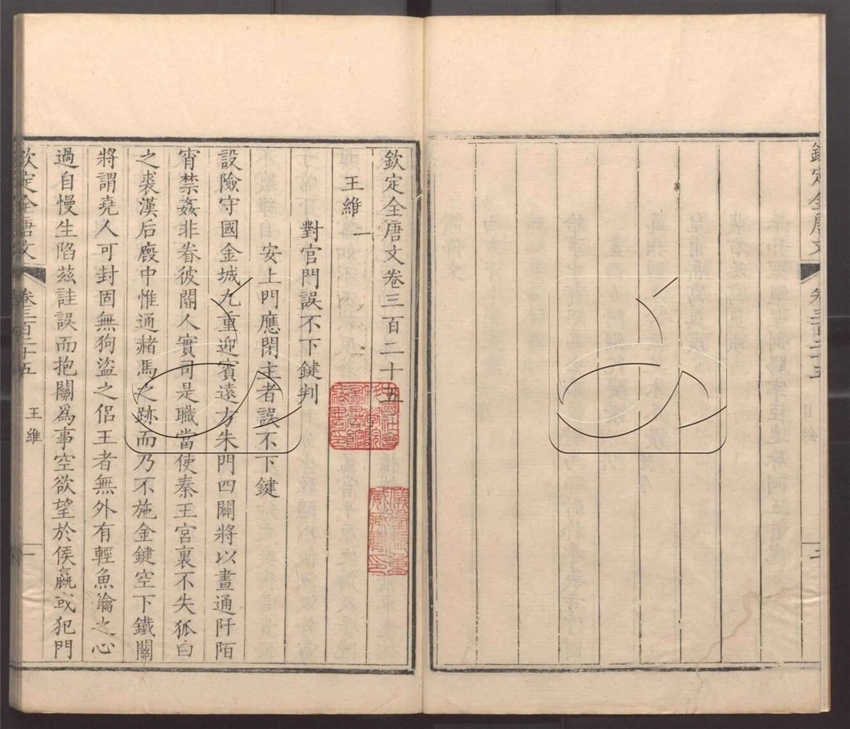 欽定全唐文
卷三百二十五
二
欽定全唐文卷三百二十五
王維一
對官門誤不下鍵判
安上門應閉主者誤不下鍵
設險守國金城九重迎賓遠方朱門四關將以晝通阡陌
宵禁姦非眷彼閽人實司是職當使秦王宮裏不失狐白
之裘漢后廄中惟通赭馬之跡而乃不施金鍵空下鐵關
將謂堯人可封固無狗盜之侶王者無外有輕魚鑰之心
過自慢生陷茲詿誤而抱關為事空欲望於侯嬴或犯門
欽定全唐文
卷三百二十五
王維
一